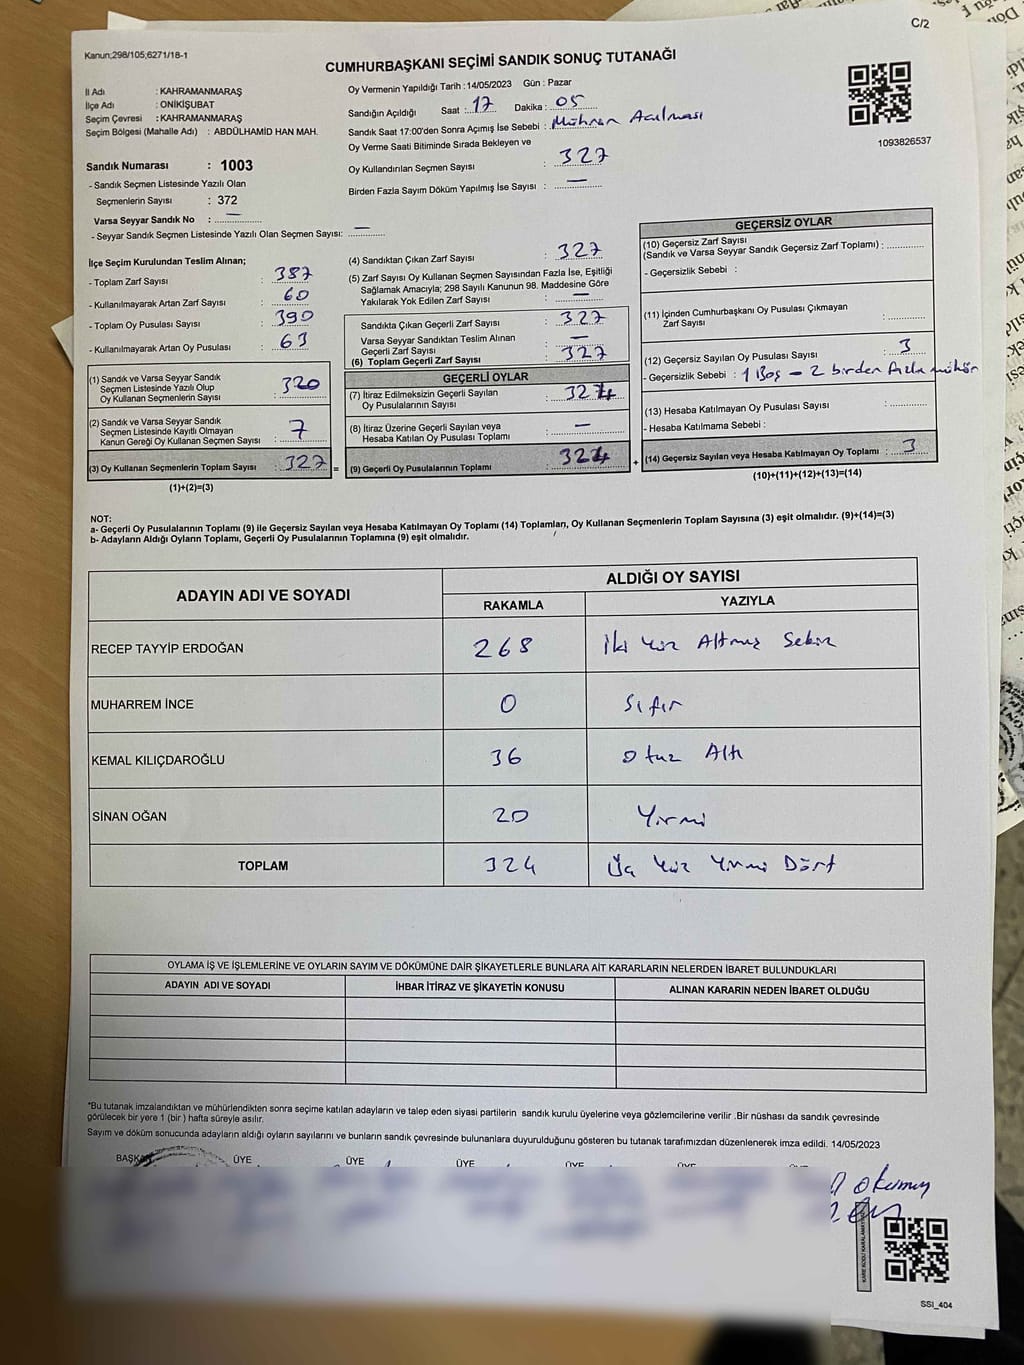 C/2
Kanun;298/105;6271/18-1
CUMHURBAŞKANI SEÇİMİ SANDIK SONUÇ TUTANAĞI
İl Adı : KAHRAMANMARAŞ
İlçe Adı : ONİKİŞUBAT
Seçim Çevresi : KAHRAMANMARAŞ
Seçim Bölgesi (Mahalle Adı) : ABDÜLHAMİD HAN MAH.
Sandık Numarası : 1003
- Sandık Seçmen Listesinde Yazılı Olan
Seçmenlerin Sayısı : 372
Varsa Seyyar Sandık No : —
- Seyyar Sandık Seçmen Listesinde Yazılı Olan Seçmen Sayısı: —
Oy Vermenin Yapıldığı Tarih : 14/05/2023 Gün : Pazar
Sandığın Açıldığı Saat : 17 Dakika : 05
Sandık Saat 17:00'den Sonra Açımış İse Sebebi : Mührün Açılması
Oy Verme Saati Bitiminde Sırada Bekleyen ve
Oy Kullandırılan Seçmen Sayısı : 327
Birden Fazla Sayım Döküm Yapılmış İse Sayısı : —
1093826537
İlçe Seçim Kurulundan Teslim Alınan;
- Toplam Zarf Sayısı : 387
- Kullanılmayarak Artan Zarf Sayısı : 60
- Toplam Oy Pusulası Sayısı : 390
- Kullanılmayarak Artan Oy Pusulası : 63
(1) Sandık ve Varsa Seyyar Sandık
Seçmen Listesinde Yazılı Olup
Oy Kullanan Seçmenlerin Sayısı : 320
(2) Sandık ve Varsa Seyyar Sandık
Seçmen Listesinde Kayıtlı Olmayan
Kanun Gereği Oy Kullanan Seçmen Sayısı : 7
(3) Oy Kullanan Seçmenlerin Toplam Sayısı : 327 =
(1)+(2)=(3)
(4) Sandıktan Çıkan Zarf Sayısı : 327
(5) Zarf Sayısı Oy Kullanan Seçmen Sayısından Fazla İse, Eşitliği
Sağlamak Amacıyla; 298 Sayılı Kanunun 98. Maddesine Göre
Yakılarak Yok Edilen Zarf Sayısı : —
Sandıkta Çıkan Geçerli Zarf Sayısı : 327
Varsa Seyyar Sandıktan Teslim Alınan
Geçerli Zarf Sayısı : —
(6) Toplam Geçerli Zarf Sayısı : 327
GEÇERLİ OYLAR
(7) İtiraz Edilmeksizin Geçerli Sayılan
Oy Pusulalarının Sayısı : 324
(8) İtiraz Üzerine Geçerli Sayılan veya
Hesaba Katılan Oy Pusulası Toplamı : —
(9) Geçerli Oy Pusulalarının Toplamı : 324 +
GEÇERSİZ OYLAR
(10) Geçersiz Zarf Sayısı
(Sandık ve Varsa Seyyar Sandık Geçersiz Zarf Toplamı) :
- Geçersizlik Sebebi :
(11) İçinden Cumhurbaşkanı Oy Pusulası Çıkmayan
Zarf Sayısı :
(12) Geçersiz Sayılan Oy Pusulası Sayısı : 3
- Geçersizlik Sebebi : 1 Boş – 2 birden fazla mühür
(13) Hesaba Katılmayan Oy Pusulası Sayısı :
- Hesaba Katılmama Sebebi :
(14) Geçersiz Sayılan veya Hesaba Katılmayan Oy Toplamı : 3
(10)+(11)+(12)+(13)=(14)
NOT:
a- Geçerli Oy Pusulalarının Toplamı (9) ile Geçersiz Sayılan veya Hesaba Katılmayan Oy Toplamı (14) Toplamları, Oy Kullanan Seçmenlerin Toplam Sayısına (3) eşit olmalıdır. (9)+(14)=(3)
b- Adayların Aldığı Oyların Toplamı, Geçerli Oy Pusulalarının Toplamına (9) eşit olmalıdır.
ADAYIN ADI VE SOYADI
ALDIĞI OY SAYISI
RAKAMLA YAZIYLA
RECEP TAYYİP ERDOĞAN 268 İki Yüz Altmış Sekiz
MUHARREM İNCE 0 Sıfır
KEMAL KILIÇDAROĞLU 36 Otuz Altı
SİNAN OĞAN 20 Yirmi
TOPLAM 324 Üç Yüz Yirmi Dört
OYLAMA İŞ VE İŞLEMLERİNE VE OYLARIN SAYIM VE DÖKÜMÜNE DAİR ŞİKAYETLERLE BUNLARA AİT KARARLARIN NELERDEN İBARET BULUNDUKLARI
ADAYIN ADI VE SOYADI İHBAR İTİRAZ VE ŞİKAYETİN KONUSU ALINAN KARARIN NEDEN İBARET OLDUĞU
*Bu tutanak imzalandıktan ve mühürlendikten sonra seçime katılan adayların ve talep eden siyasi partilerin sandık kurulu üyelerine veya gözlemcilerine verilir .Bir nüshası da sandık çevresinde
görülecek bir yere 1 (bir ) hafta süreyle asılır.
Sayım ve döküm sonucunda adayların aldığı oyların sayılarını ve bunların sandık çevresinde bulunanlara duyurulduğunu gösteren bu tutanak tarafımızdan düzenlenerek imza edildi. 14/05/2023
BAŞKAN ÜYE ÜYE ÜYE ÜYE ÜYE
SSI_404